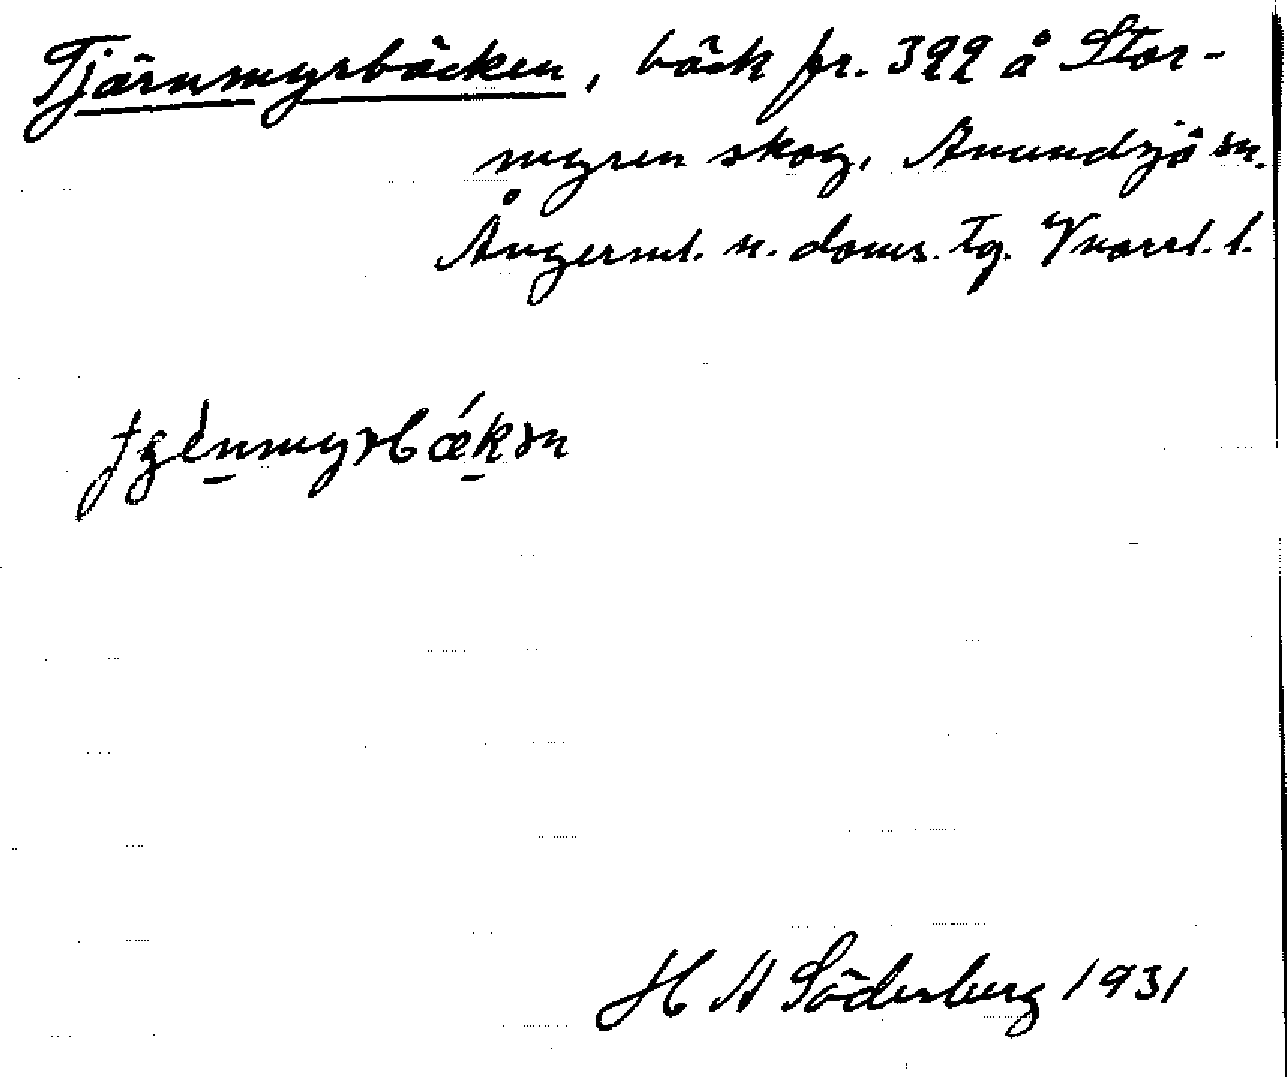 Tjärnmyrbäcken, bäck fr. 322 å Stor-
myren skog, Anundsjö sn.
Ångerml. n. doms. tg. Vnorrl. l.
H A Söderberg 1931